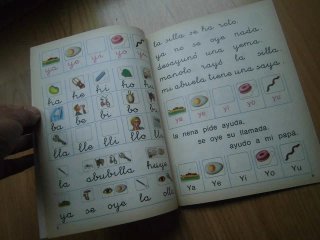 ya ye yi yo yu
ha he hi ho
ba be bi bo
lla lle lli llo
la abubilla huye
ya se oye la olla
la silla se ha roto.
ya no se oye nada.
desayunó una yema.
manolo rayó la silla.
mi abuela tiene una saya.
ya ye yi yo yu
la nena pide ayuda.
se oye su llamada.
ayudo a mi papá.
Ya Ye Yi Yo Yu